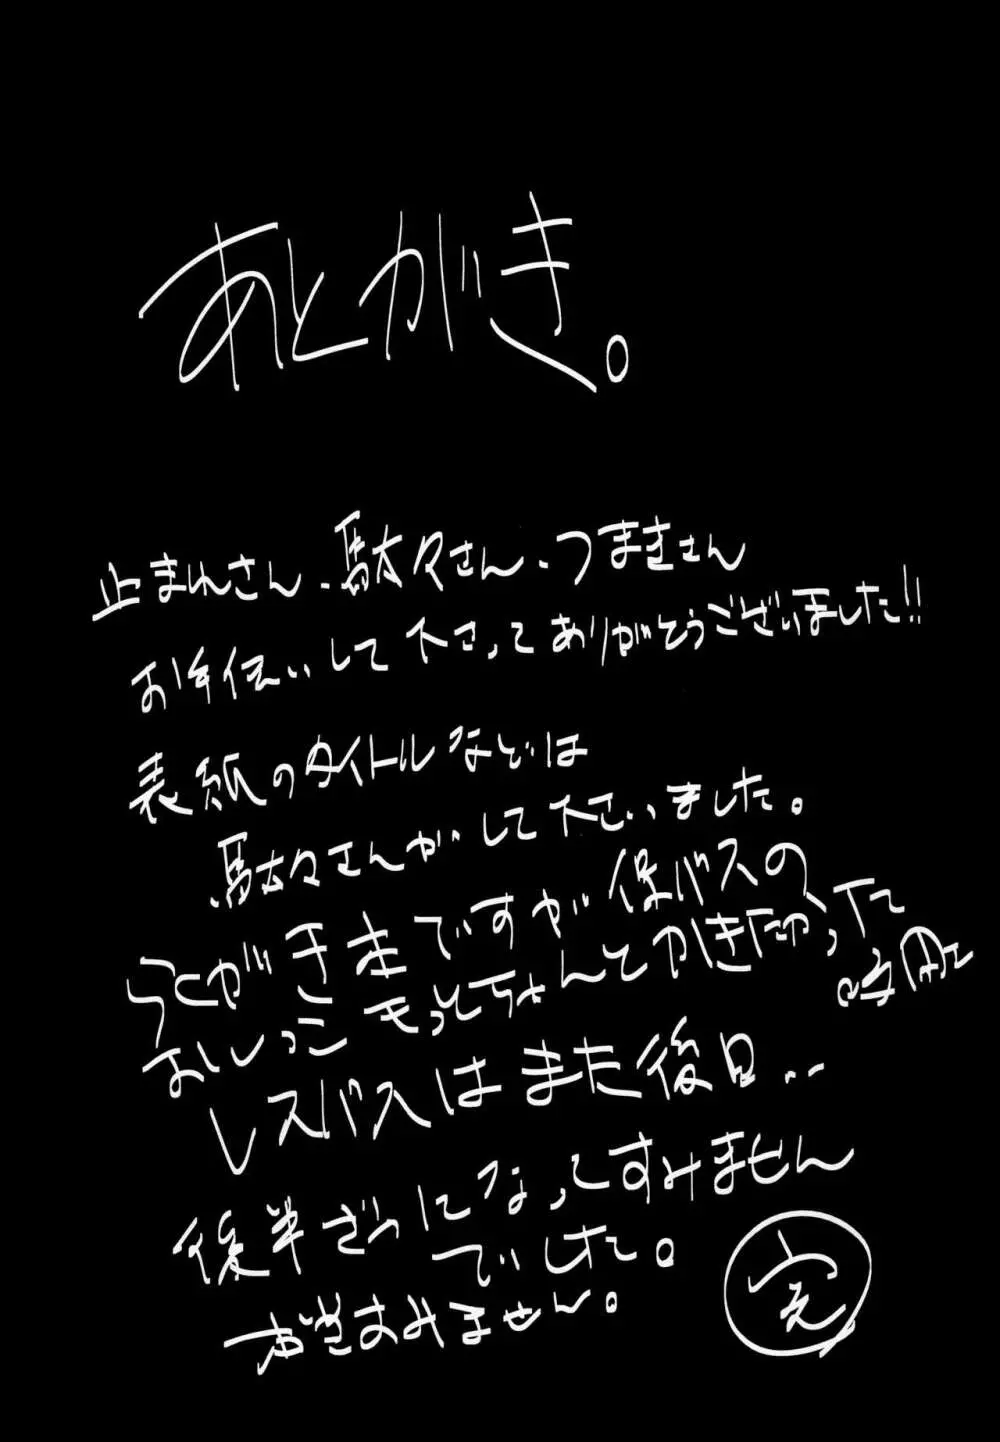 あとがき。
止まれさん、駄々さん、つまきさん
お手伝いして下さってありがとうございました!!
表紙のタイトルなどは
駄々さんがして下さいました。
らくがき本ですが保バスの
おしっこもっとちゃんとかきたかった
時間
レズバスはまた後日..
後半ざつになってすみません
でした。
本当すみません。
完